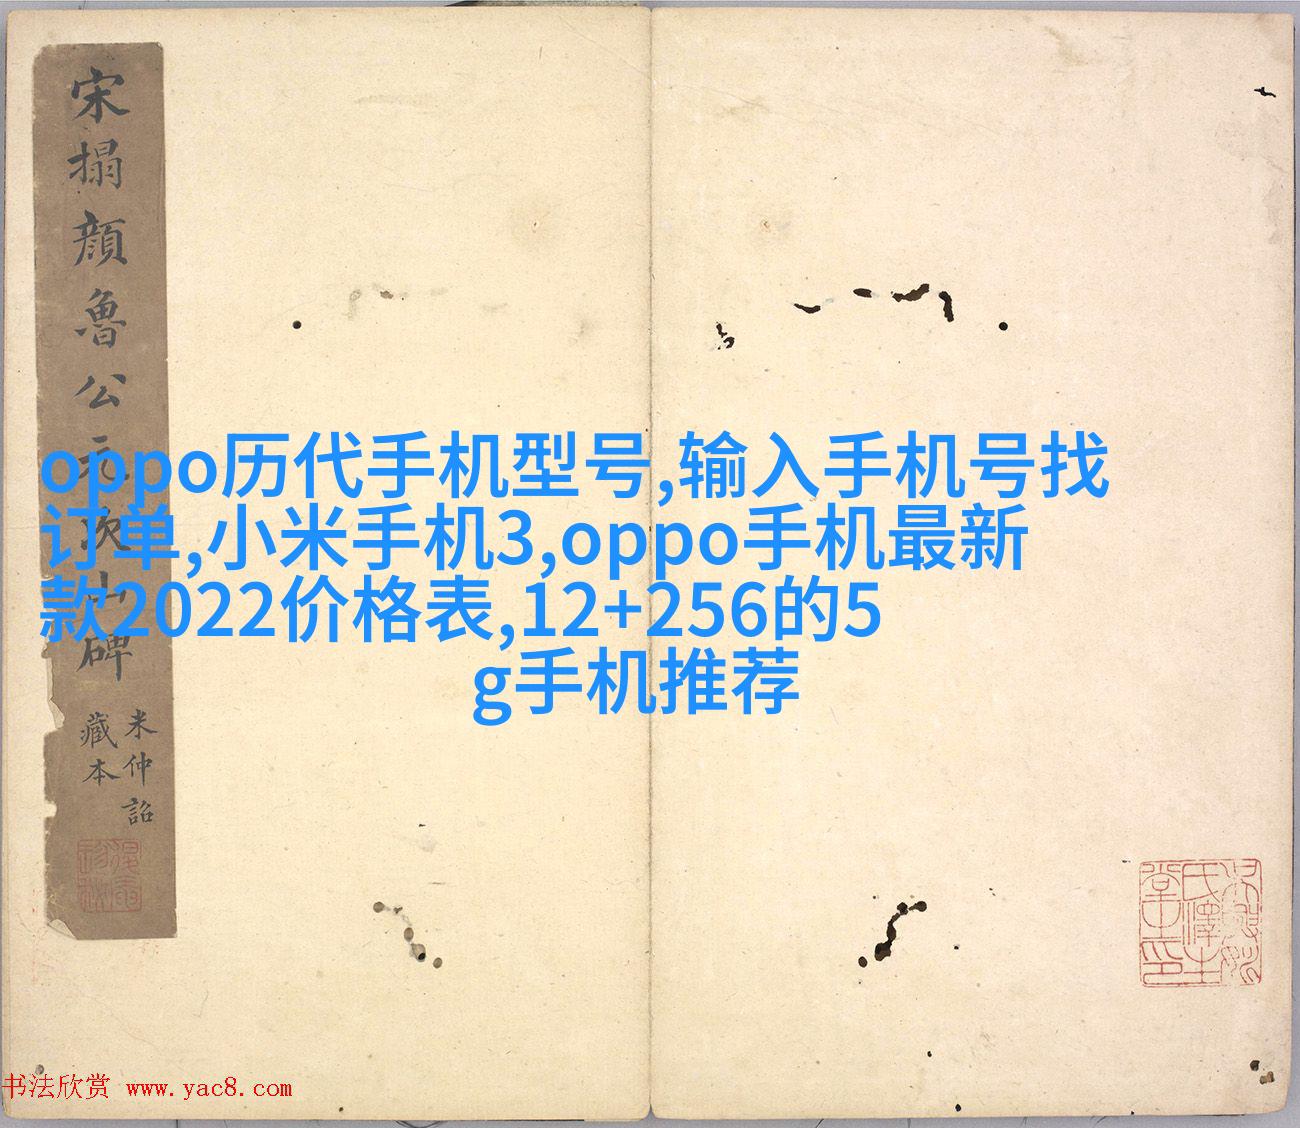 宋搨顏魯公元次山碑
米仲詔
藏本
oppo历代手机型号,输入手机号找
订单,小米手机3,oppo手机最新
款2022价格表,12+256的5
g手机推荐
书法欣赏 www.yac8.com